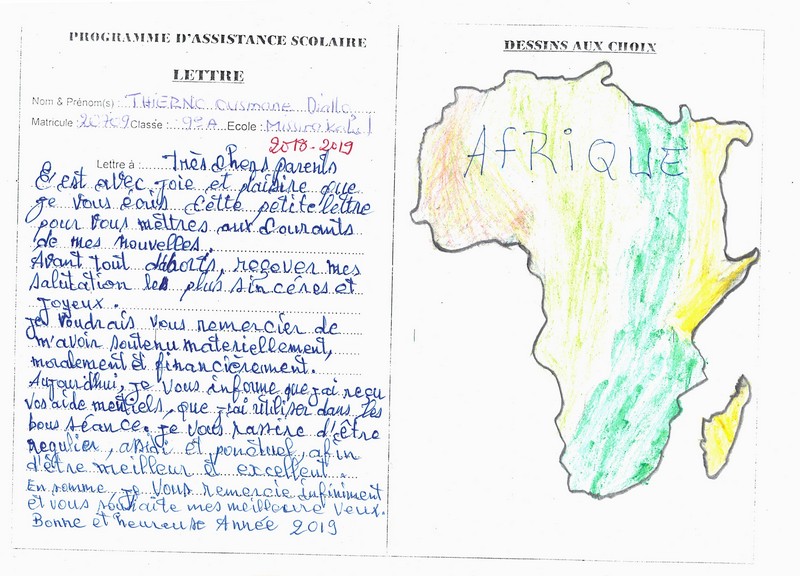 PROGRAMME D'ASSISTANCE SCOLAIRE
LETTRE
Nom & Prénom(s) : THIERNO Ousmane Diallo
Matricule : 20709 Classe : 9e A Ecole :
2018-2019
Lettre à : très chers parents
C'est avec joie et plaisire que
je vous écris cette petite lettre
pour vous mettres aux courants
de mes nouvelles.
Avant tout d'aborts, recever mes
salutation les plus sincéres et
joyeux.
je voudrais vous remercier de
m'avoir soutenu materiellement,
moralement et financièrement.
Aujourd'hui, je vous informe que j'ai reçu
vos aide mentiels, que j'ai utiliser dans les
bous séance. je vous rassire d'être
regulier, assidi et ponctuel, afin
d'être meilleur et excellent.
En somme, je vous remercie infiniment
et vous souhaite mes meilleure veux.
Bonne et heureuse Année 2019
DESSINS AUX CHOIX
AfRiQUE